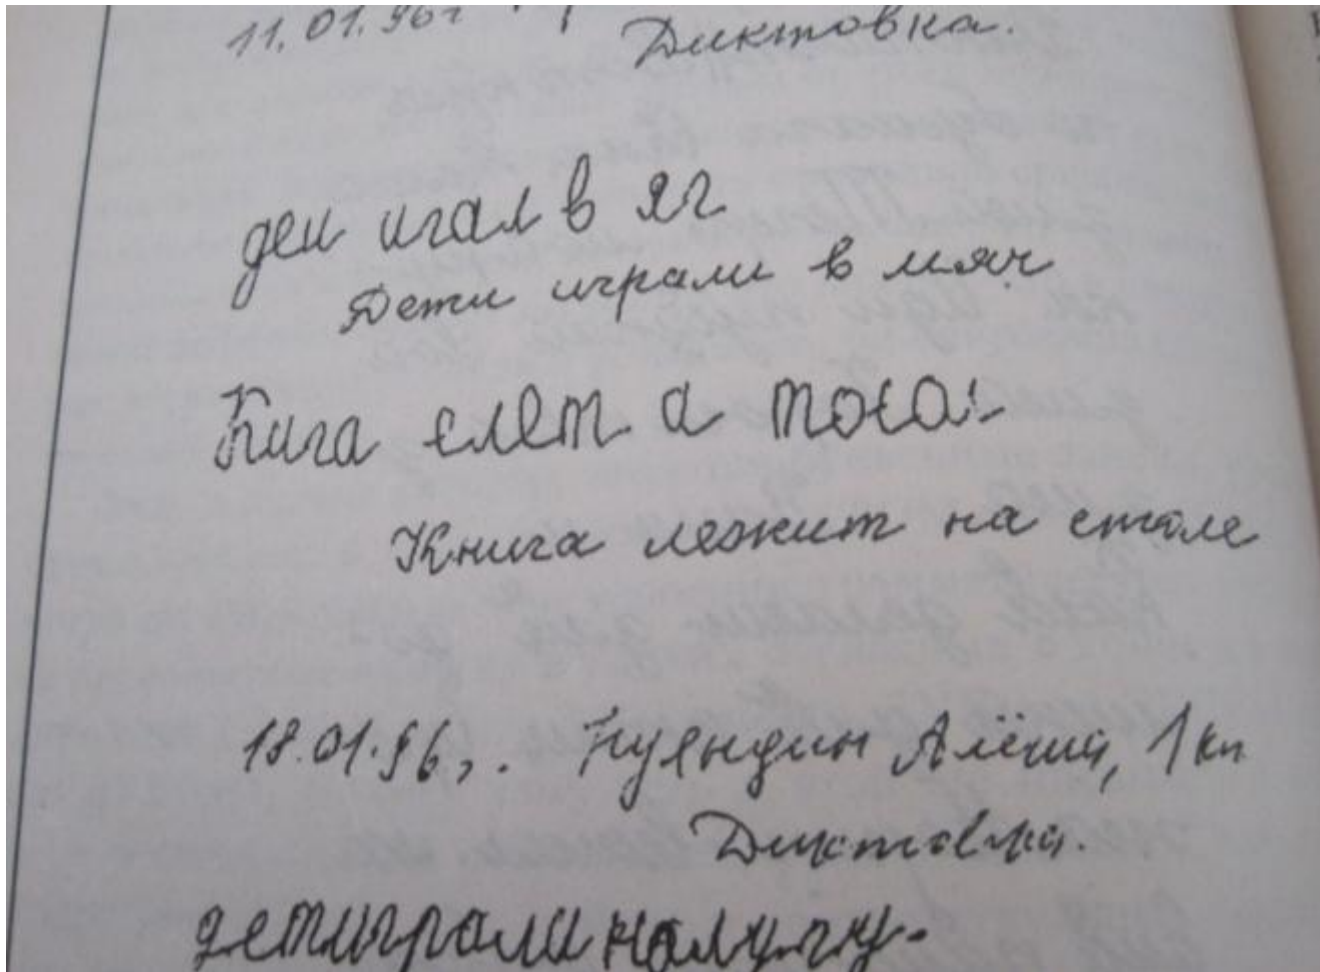 11.01.96г
Диктовка.
деи игал в яг
Дети играли в мяч
Кига елет а тоса
Книга лежит на столе
18.01.96г. Алёша, 1 кл
Диктовка.
детиграли налугу.